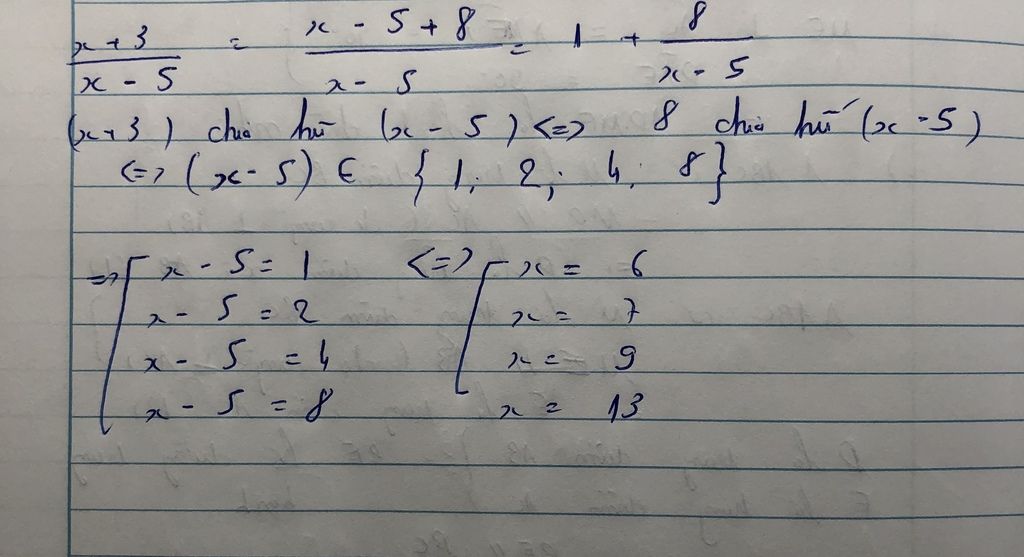 x+3 / x-5 = x-5+8 / x-5 = 1 + 8 / x-5
(x+3) chia hết (x-5) <=> 8 chia hết (x-5)
<=> (x-5) ∈ {1; 2; 4; 8}
=> [ x-5=1 <=> [ x= 6
x-5 =2 x= 7
x- 5 =4 x= 9
x- 5 =8 x= 13